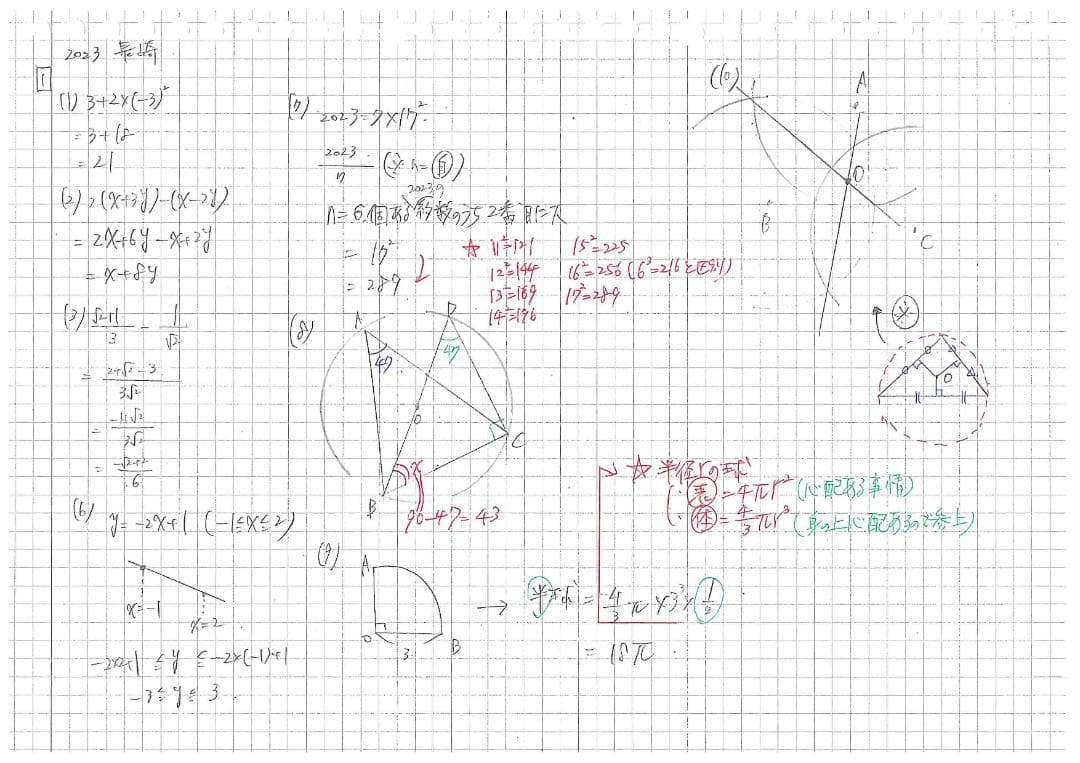 2023 長崎
1
(1) 3+2×(-3)²
= 3+18
= 21
(2) 2(x+3y)-(x-2y)
= 2x+6y-x+2y
= x+8y
(3) √2+1/3 - 1/√2
= 2+√2-3/3√2
= -1+√2/3√2
= -√2+2/6
(6) y=-2x+1 (-1≦x≦2)
x=-1
x=2
-2×2+1 ≦ y ≦ -2×(-1)+1
-3≦y≦3
(7) 2023=7×17²
2023/n (※ n=自)
2023の
n=6個ある約数のうち2番目に大
= 17²
= 289
☆ 11²=121 15²=225
12²=144 16²=256 (6³=216と区別)
13²=169 17²=289
14²=196
(8)
A
D
47
47
O
C
B
x
90-47=43
(9)
A
O
3
B
→ 半球 = 4/3 π ×3³× 1/2
= 18π
☆ 半径rの球
∴ 表 = 4πr² (心配ある事情)
∴ 体 = 4/3 πr³ (身の上心配あるので参上)
(10)
A
O
B
C
※
O